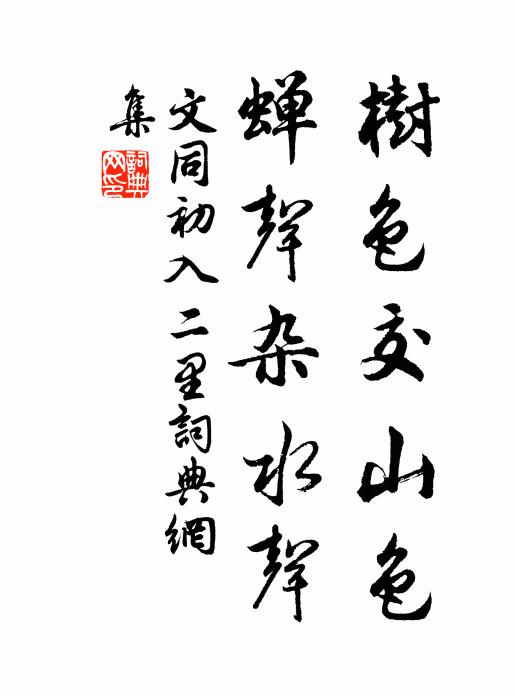 樹色交山色
蟬聲杂水聲
文同初入二里詞典網
集
詞典网印